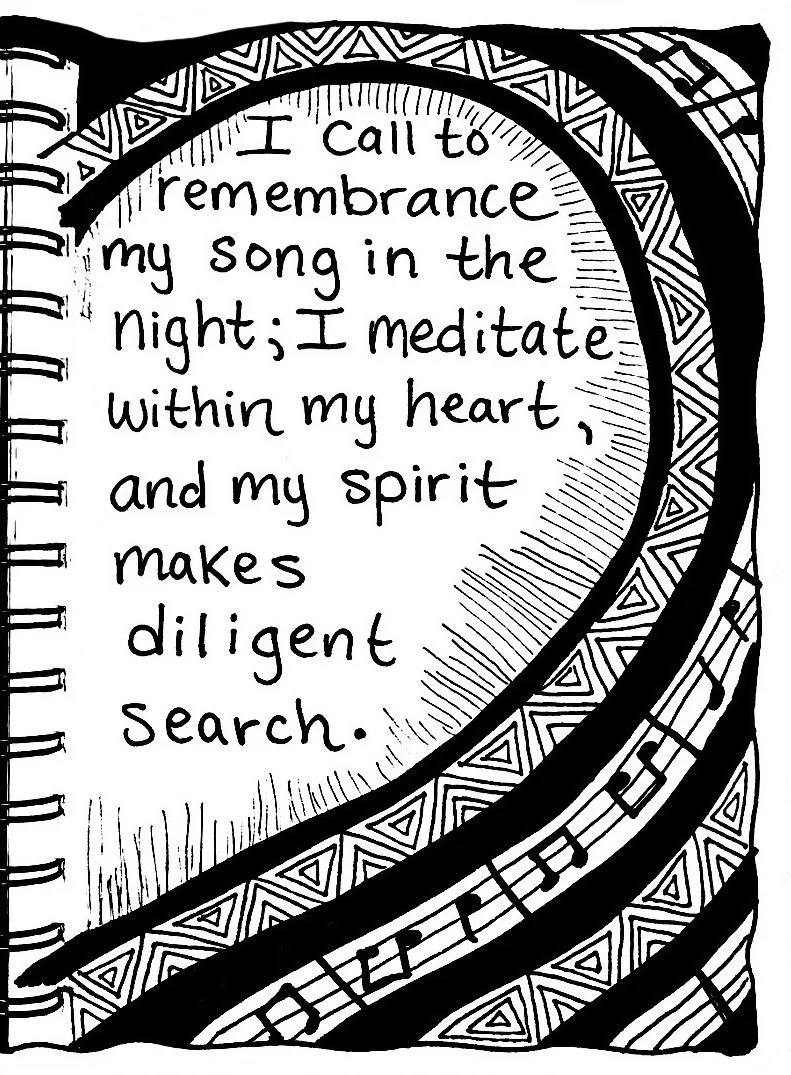 I Call to
remembrance
my song in the
night; I meditate
within my heart,
and my spirit
makes
diligent
search.